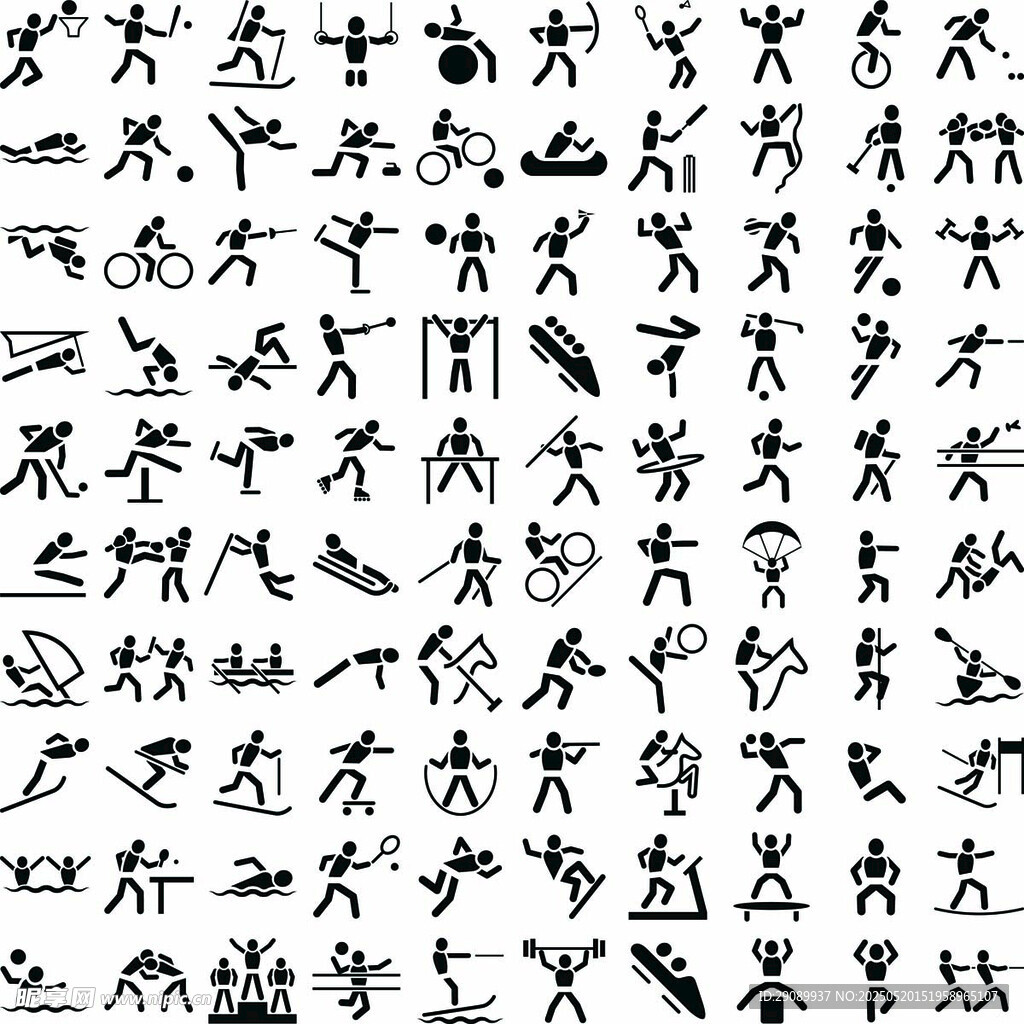 昵享网 www.nipic.cn
ID:29089937 NO:20250520151958965107